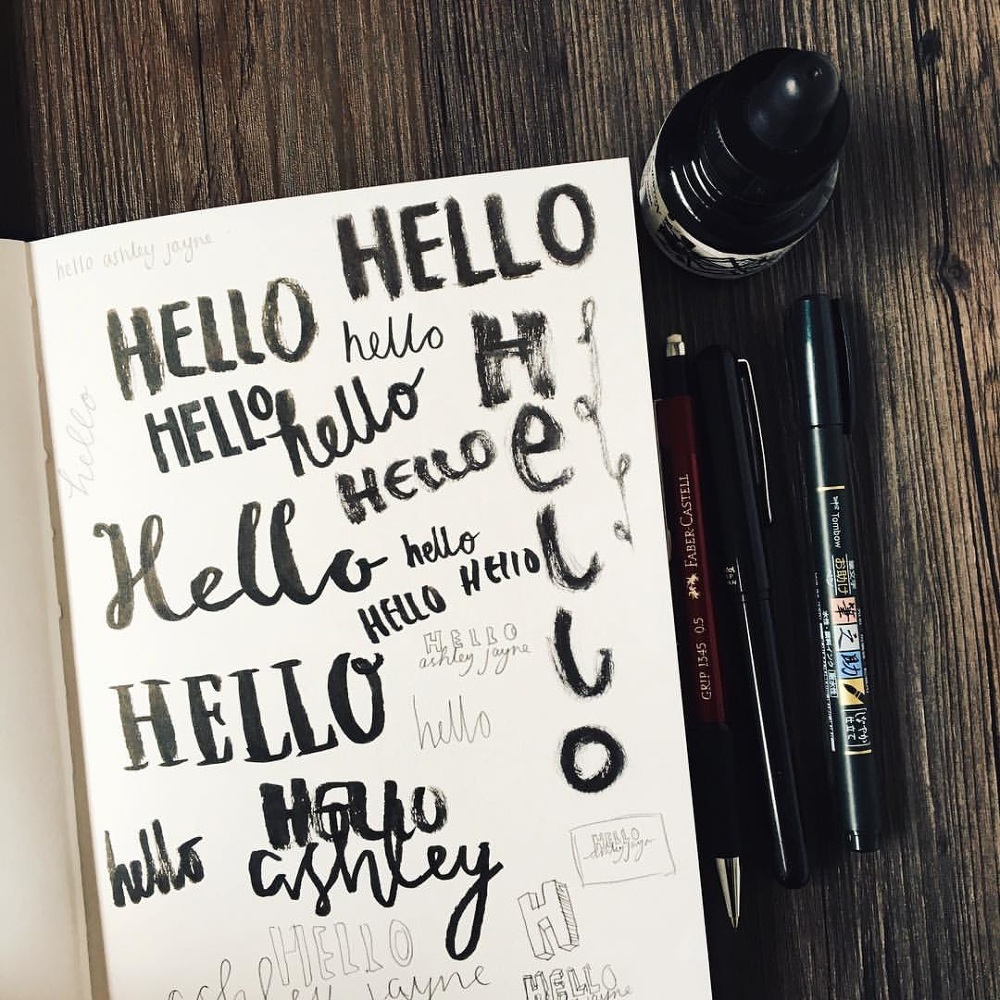 hello ashley jayne
HELLO
HELLO
hello
HELLO
hello
hello
HELLO
Hello
hello
HELLO
HELLO
Hello
HELLO
ashley jayne
HELLO
hello
hello
HELLO
ashley
HELLO
ashley jayne
HELLO
H
HELLO
ashley jayne
FABER-CASTELL
GRIP 1345 0.5
Tombow
お助け
筆之助
しなやか
仕立て